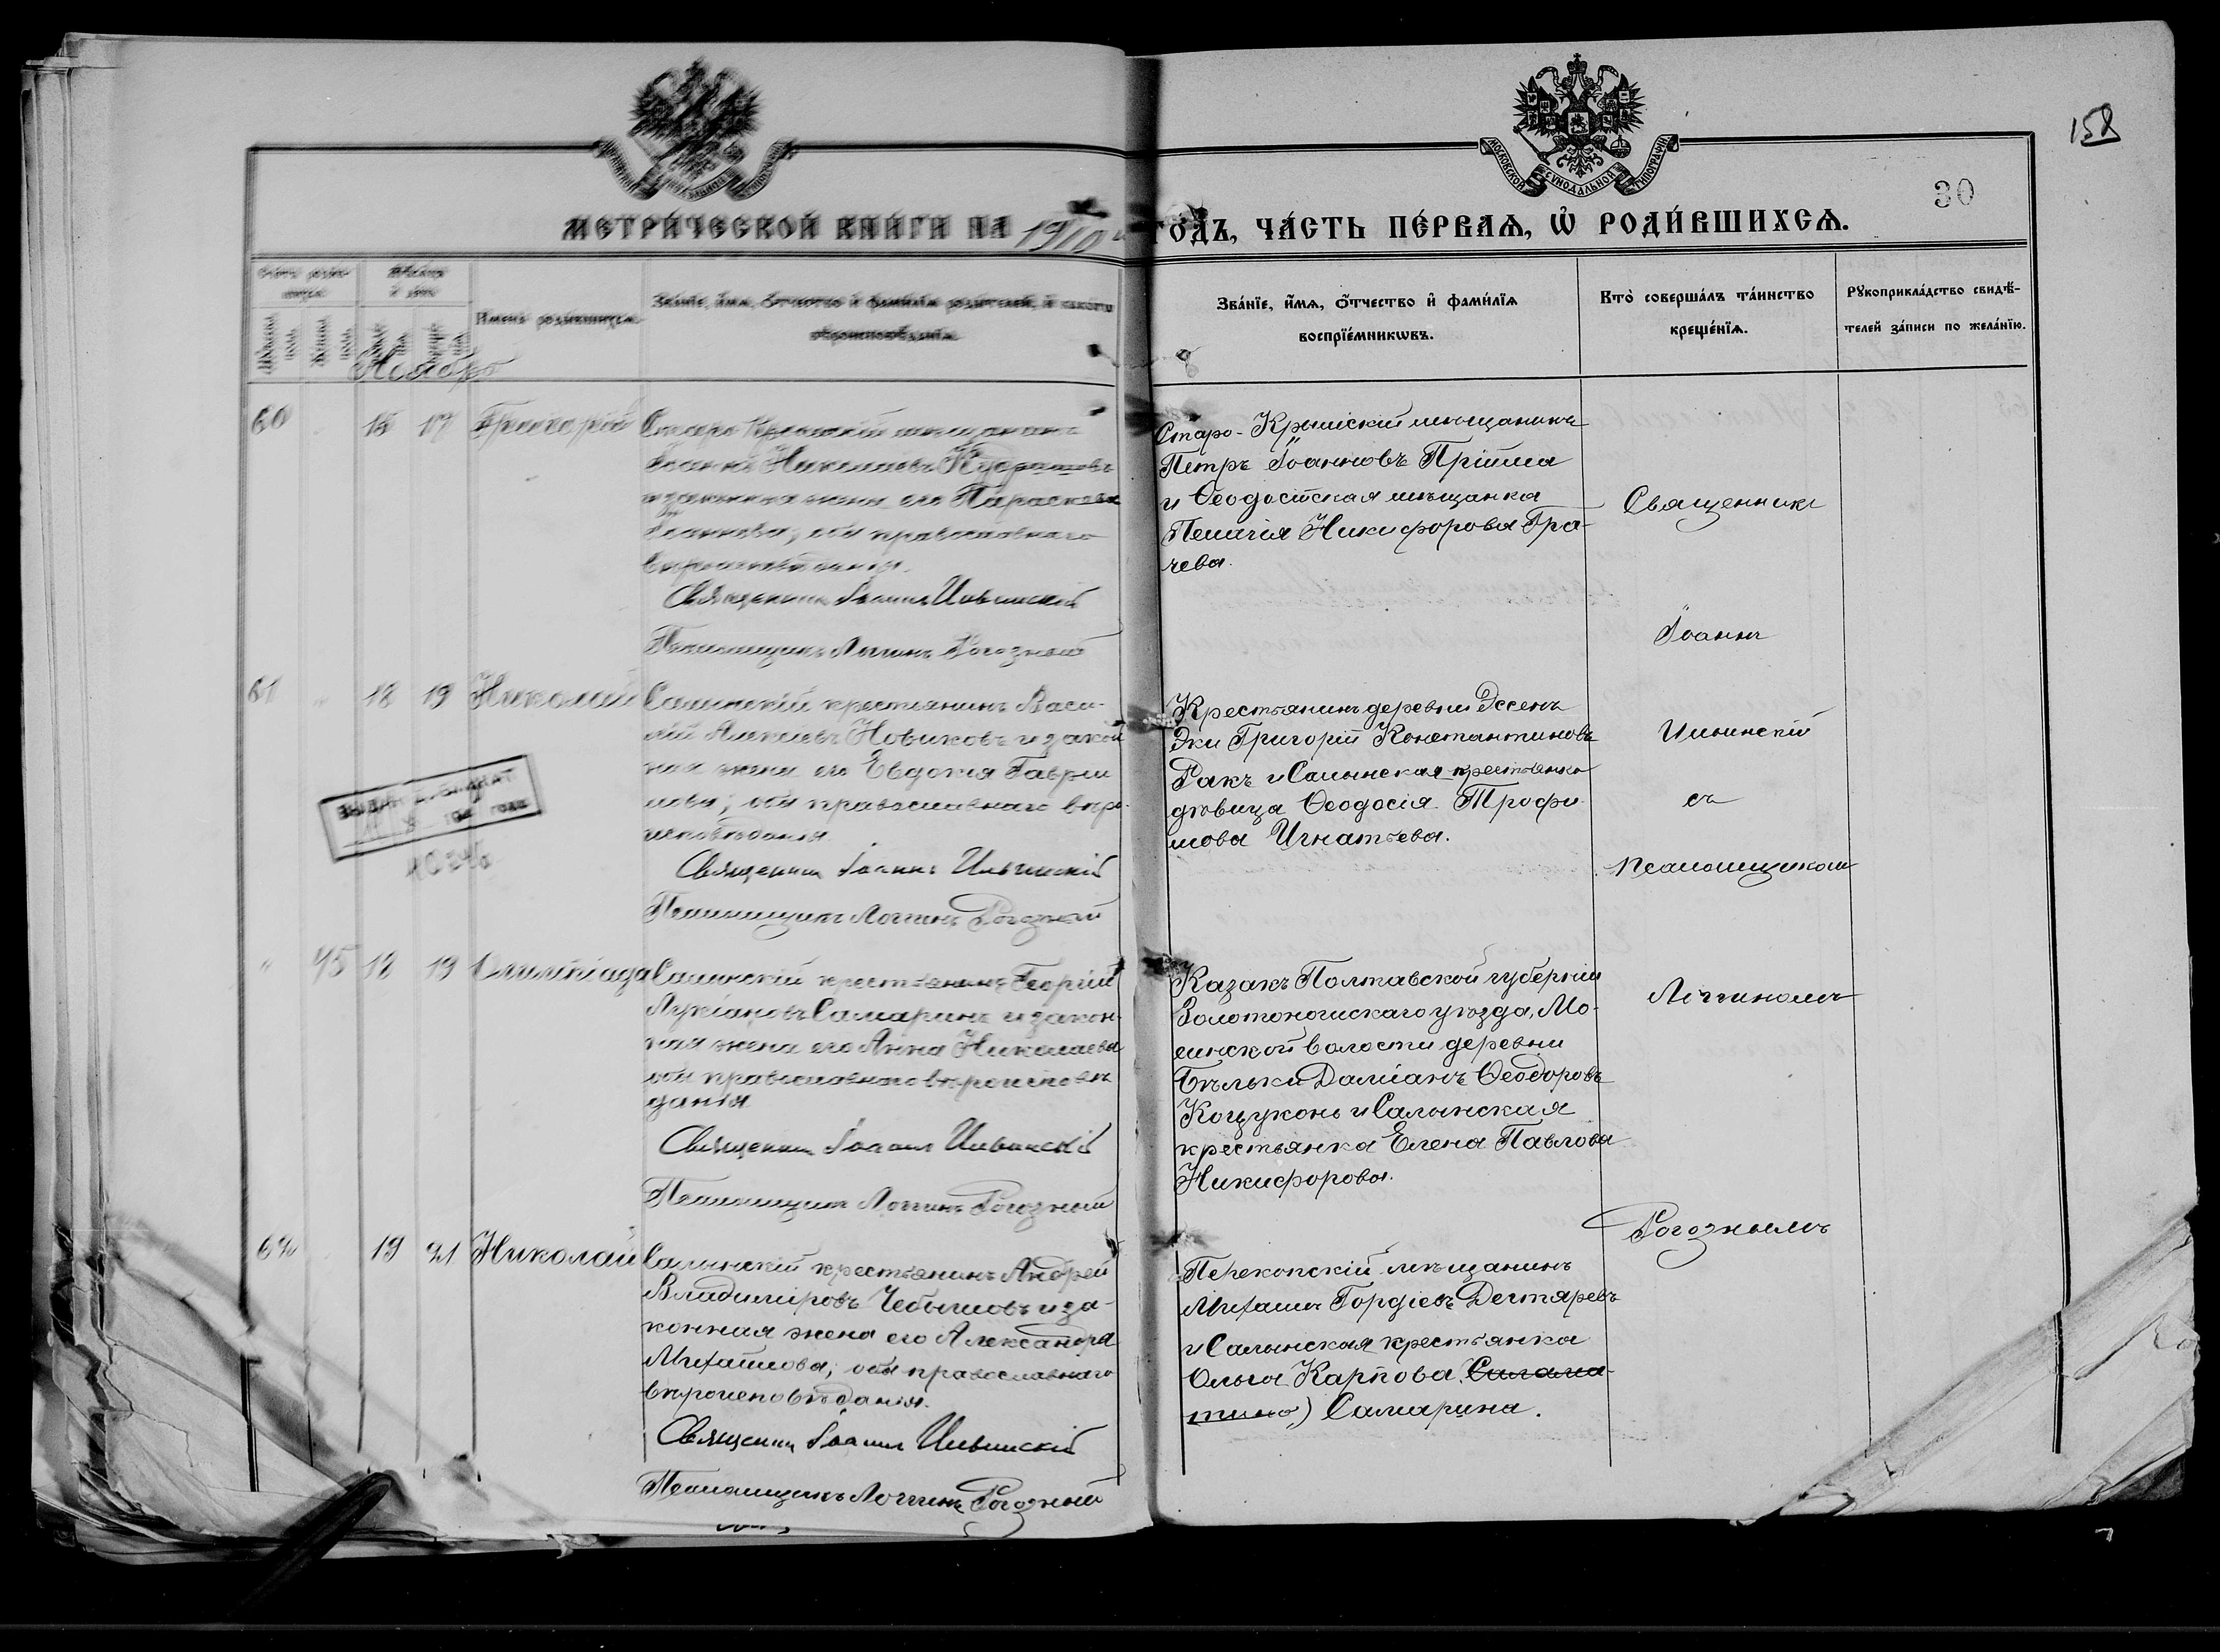 158
30
МЕТРИ́ЧЕСКОЙ КНИ́ГИ НА 1910 ГО́ДЪ, ЧА́СТЬ ПЕ́РВАѦ, Ѡ҆ РОДИ́ВШИХСѦ.
МОСКОВСКОЙ СѴНОДАЛЬНОЙ ТИПОГРАФІИ
Мѣсяцъ и день
Имена родившихся
Зва́нїе, и҆́мѧ, ѻ҆́тчество и҆ фами́лїѧ родителей, и҆ какого
вѣроисповѣданїѧ.
Зва́нїе, и҆́мѧ, ѻ҆́тчество и҆ фами́лїѧ
воспрїе́мникѡвъ.
Кто̀ соверша́лъ та́инство
креще́нїѧ.
Рꙋкоприкла́дство свидѣ́-
телей за́писи по жела́нїю.
Ноябрь
60 15 17 Григорій
Старо Крымскій мѣщанинъ
Іоаннъ Николаевъ Кудряшовъ
и законная жена его Параскева
Іоаннова, оба православнаго
вѣроисповѣданія.
Священникъ Іоаннъ Ильинскій
Псаломщикъ Логгинъ Рогозный
Старо-Крымскій мѣщанинъ
Петръ Іоанновъ Прійма
и Ѳеодосійская мѣщанка
Пелагія Никифорова Гра-
чева.
61 " 18 19 Николай
Салынскій крестьянинъ Васи-
лій Алексѣевъ Новиковъ и закон
ная жена его Евдокія Гаврии
лова; оба православнаго вѣро-
исповѣданія.
Священникъ Іоаннъ Ильинскій
Псаломщикъ Логгинъ Рогозный
Крестьянинъ деревни Эссенъ
Эки Григорій Константиновъ
Ракъ и Салынская крестьянка
дѣвица Ѳеодосія Трофи
мова Игнатьева.
ВЫДАН ДУБЛИКАТ
194 года
" 45 18 19 Олимпіада
Салынскій крестьянинъ Георгій
Лукіановъ Самаринъ и закон-
ная жена его Анна Николаева
оба православнаго вѣроисповѣ
данія
Священникъ Іоаннъ Ильинскій
Псаломщикъ Логгинъ Рогозный
Казакъ Полтавской губерніи
Золотоношскаго уѣзда, Мо-
синской волости деревни
Бѣльки Даміанъ Ѳеодоровъ
Коцуконь и Салынская
крестьянка Елена Павлова
Никифорова.
62 19 21 Николай
Салынскій крестьянинъ Андрей
Владиміровъ Чебышовъ и за-
конная жена его Александра
Михайлова; оба православнаго
вѣроисповѣданія.
Священникъ Іоаннъ Ильинскій
Псаломщикъ Логгинъ Рогозный
Перекопскій мѣщанинъ
Михаилъ Гордіевъ Дегтяревъ
и Салынская крестьянка
Ольга Карпова (Салама-
тина) Самарина.
Священникъ
Іоаннъ
Ильинскій
съ
псаломщикомъ
Логгиномъ
Рогознымъ